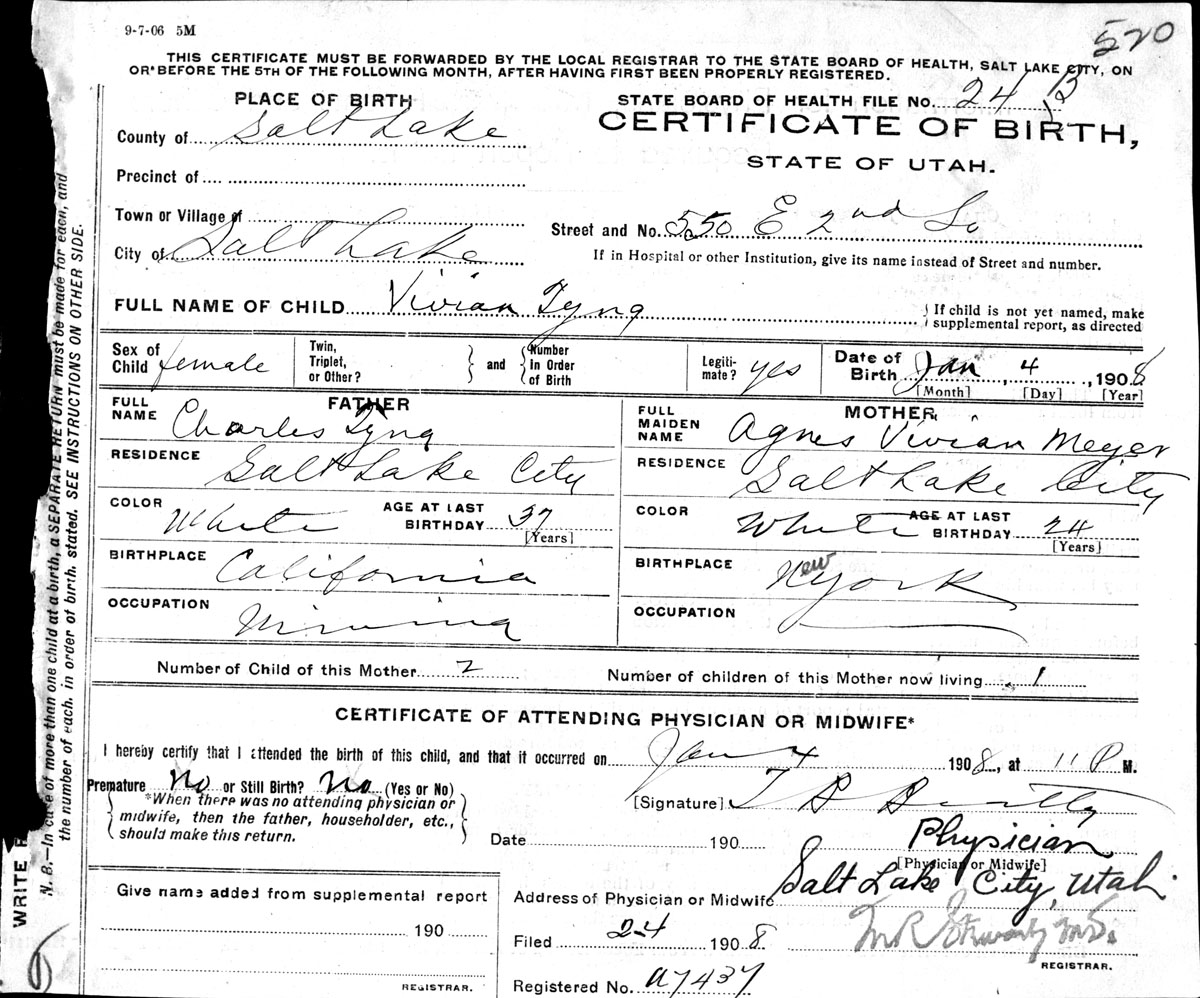 9-7-06 5M
520
THIS CERTIFICATE MUST BE FORWARDED BY THE LOCAL REGISTRAR TO THE STATE BOARD OF HEALTH, SALT LAKE CITY, ON
OR BEFORE THE 5TH OF THE FOLLOWING MONTH, AFTER HAVING FIRST BEEN PROPERLY REGISTERED.
PLACE OF BIRTH
STATE BOARD OF HEALTH FILE NO. 24
County of Salt Lake
CERTIFICATE OF BIRTH,
STATE OF UTAH.
Precinct of
Town or Village of
Street and No. 550 E 2nd So
City of Salt Lake
If in Hospital or other Institution, give its name instead of Street and number.
FULL NAME OF CHILD Vivian Tyng
If child is not yet named, make
supplemental report, as directed
Sex of
Child female
Twin,
Triplet,
or Other?
and
Number
In Order
of Birth
Legiti-
mate? yes
Date of
Birth Jan, 4, 1908
[Month] [Day] [Year]
FATHER
FULL
NAME Charles Tyng
RESIDENCE Salt Lake City
COLOR White
AGE AT LAST
BIRTHDAY 37
[Years]
BIRTHPLACE California
OCCUPATION Mining
MOTHER
FULL
MAIDEN
NAME Agnes Vivian Meyer
RESIDENCE Salt Lake City
COLOR White
AGE AT LAST
BIRTHDAY 24
[Years]
BIRTHPLACE New York
OCCUPATION
Number of Child of this Mother 2
Number of children of this Mother now living 1
CERTIFICATE OF ATTENDING PHYSICIAN OR MIDWIFE*
I hereby certify that I attended the birth of this child, and that it occurred on Jan 4 1908, at 11 P M.
Premature No or Still Birth? No (Yes or No)
*When there was no attending physician or
midwife, then the father, householder, etc.,
should make this return.
[Signature] T B Beatty
Date 190
Physician
[Physician or Midwife]
Give name added from supplemental report
190
REGISTRAR.
Address of Physician or Midwife Salt Lake City, Utah.
Filed 2-4 1908
REGISTRAR.
Registered No. a7437
WRITE
N. B.—In case of more than one child at a birth, a SEPARATE RETURN must be made for each, and
the number of each, in order of birth, stated. SEE INSTRUCTIONS ON OTHER SIDE.